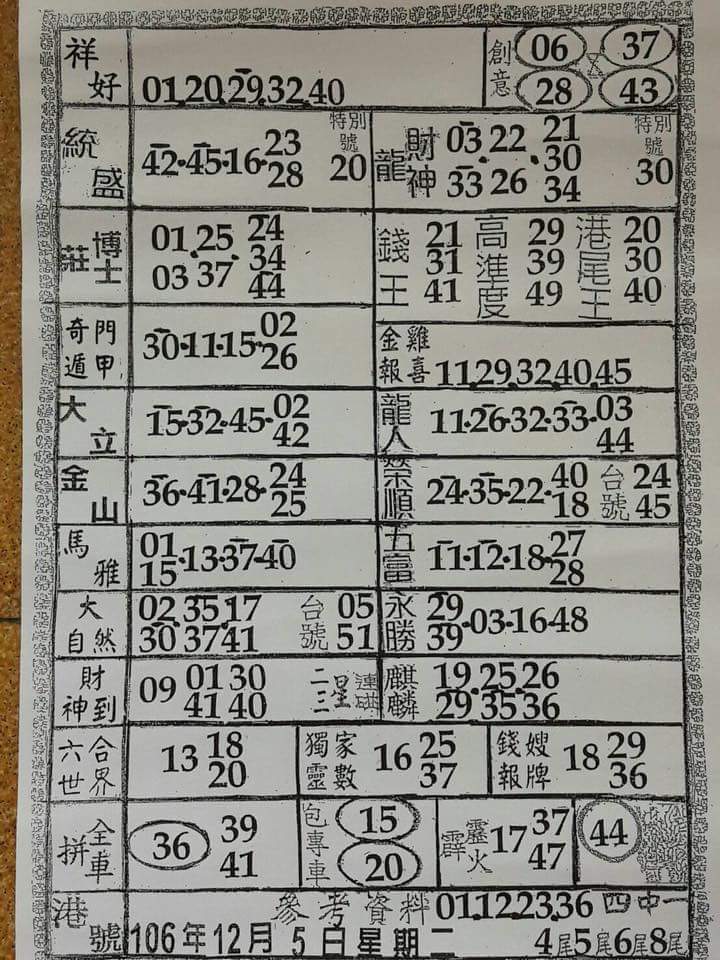 祥好 01.20.29.32.40
創意 06 37
28 43
統盛 42·45·16·23
28
特別號 20
龍財神 03.22.21
33 26 30
34
特別號 30
莊博士 01.25.24
03 37 34
44
錢王 21 31 41
高準度 29 39 49
港尾王 20 30 40
奇門遁甲 30·11·15·02
26
金雞報喜 11.29.32.40.45
大立 15·32·45·02
42
龍人 11·26·32·33·03
44
金山 36·41·28·24
25
榮順 24·35·22·40
18
台號 24 45
馬雅 01
15·13·37·40
五富 11·12·18·27
28
大自然 02.35.17
30 37 41
台號 05
51
永勝 29
39·03·16·48
財神到 09 01 30
41 40
二三星連碰
麒麟 19.25.26
29 35 36
六合世界 13 18
20
獨家靈數 16 25
37
錢嫂報牌 18 29
36
全車拼 36 39
41
包專車 15
20
霹靂火 17 37
47
44
港號 參考資料 01.12.23.36 四中一
106年12月5日星期二 4尾5尾6尾8尾